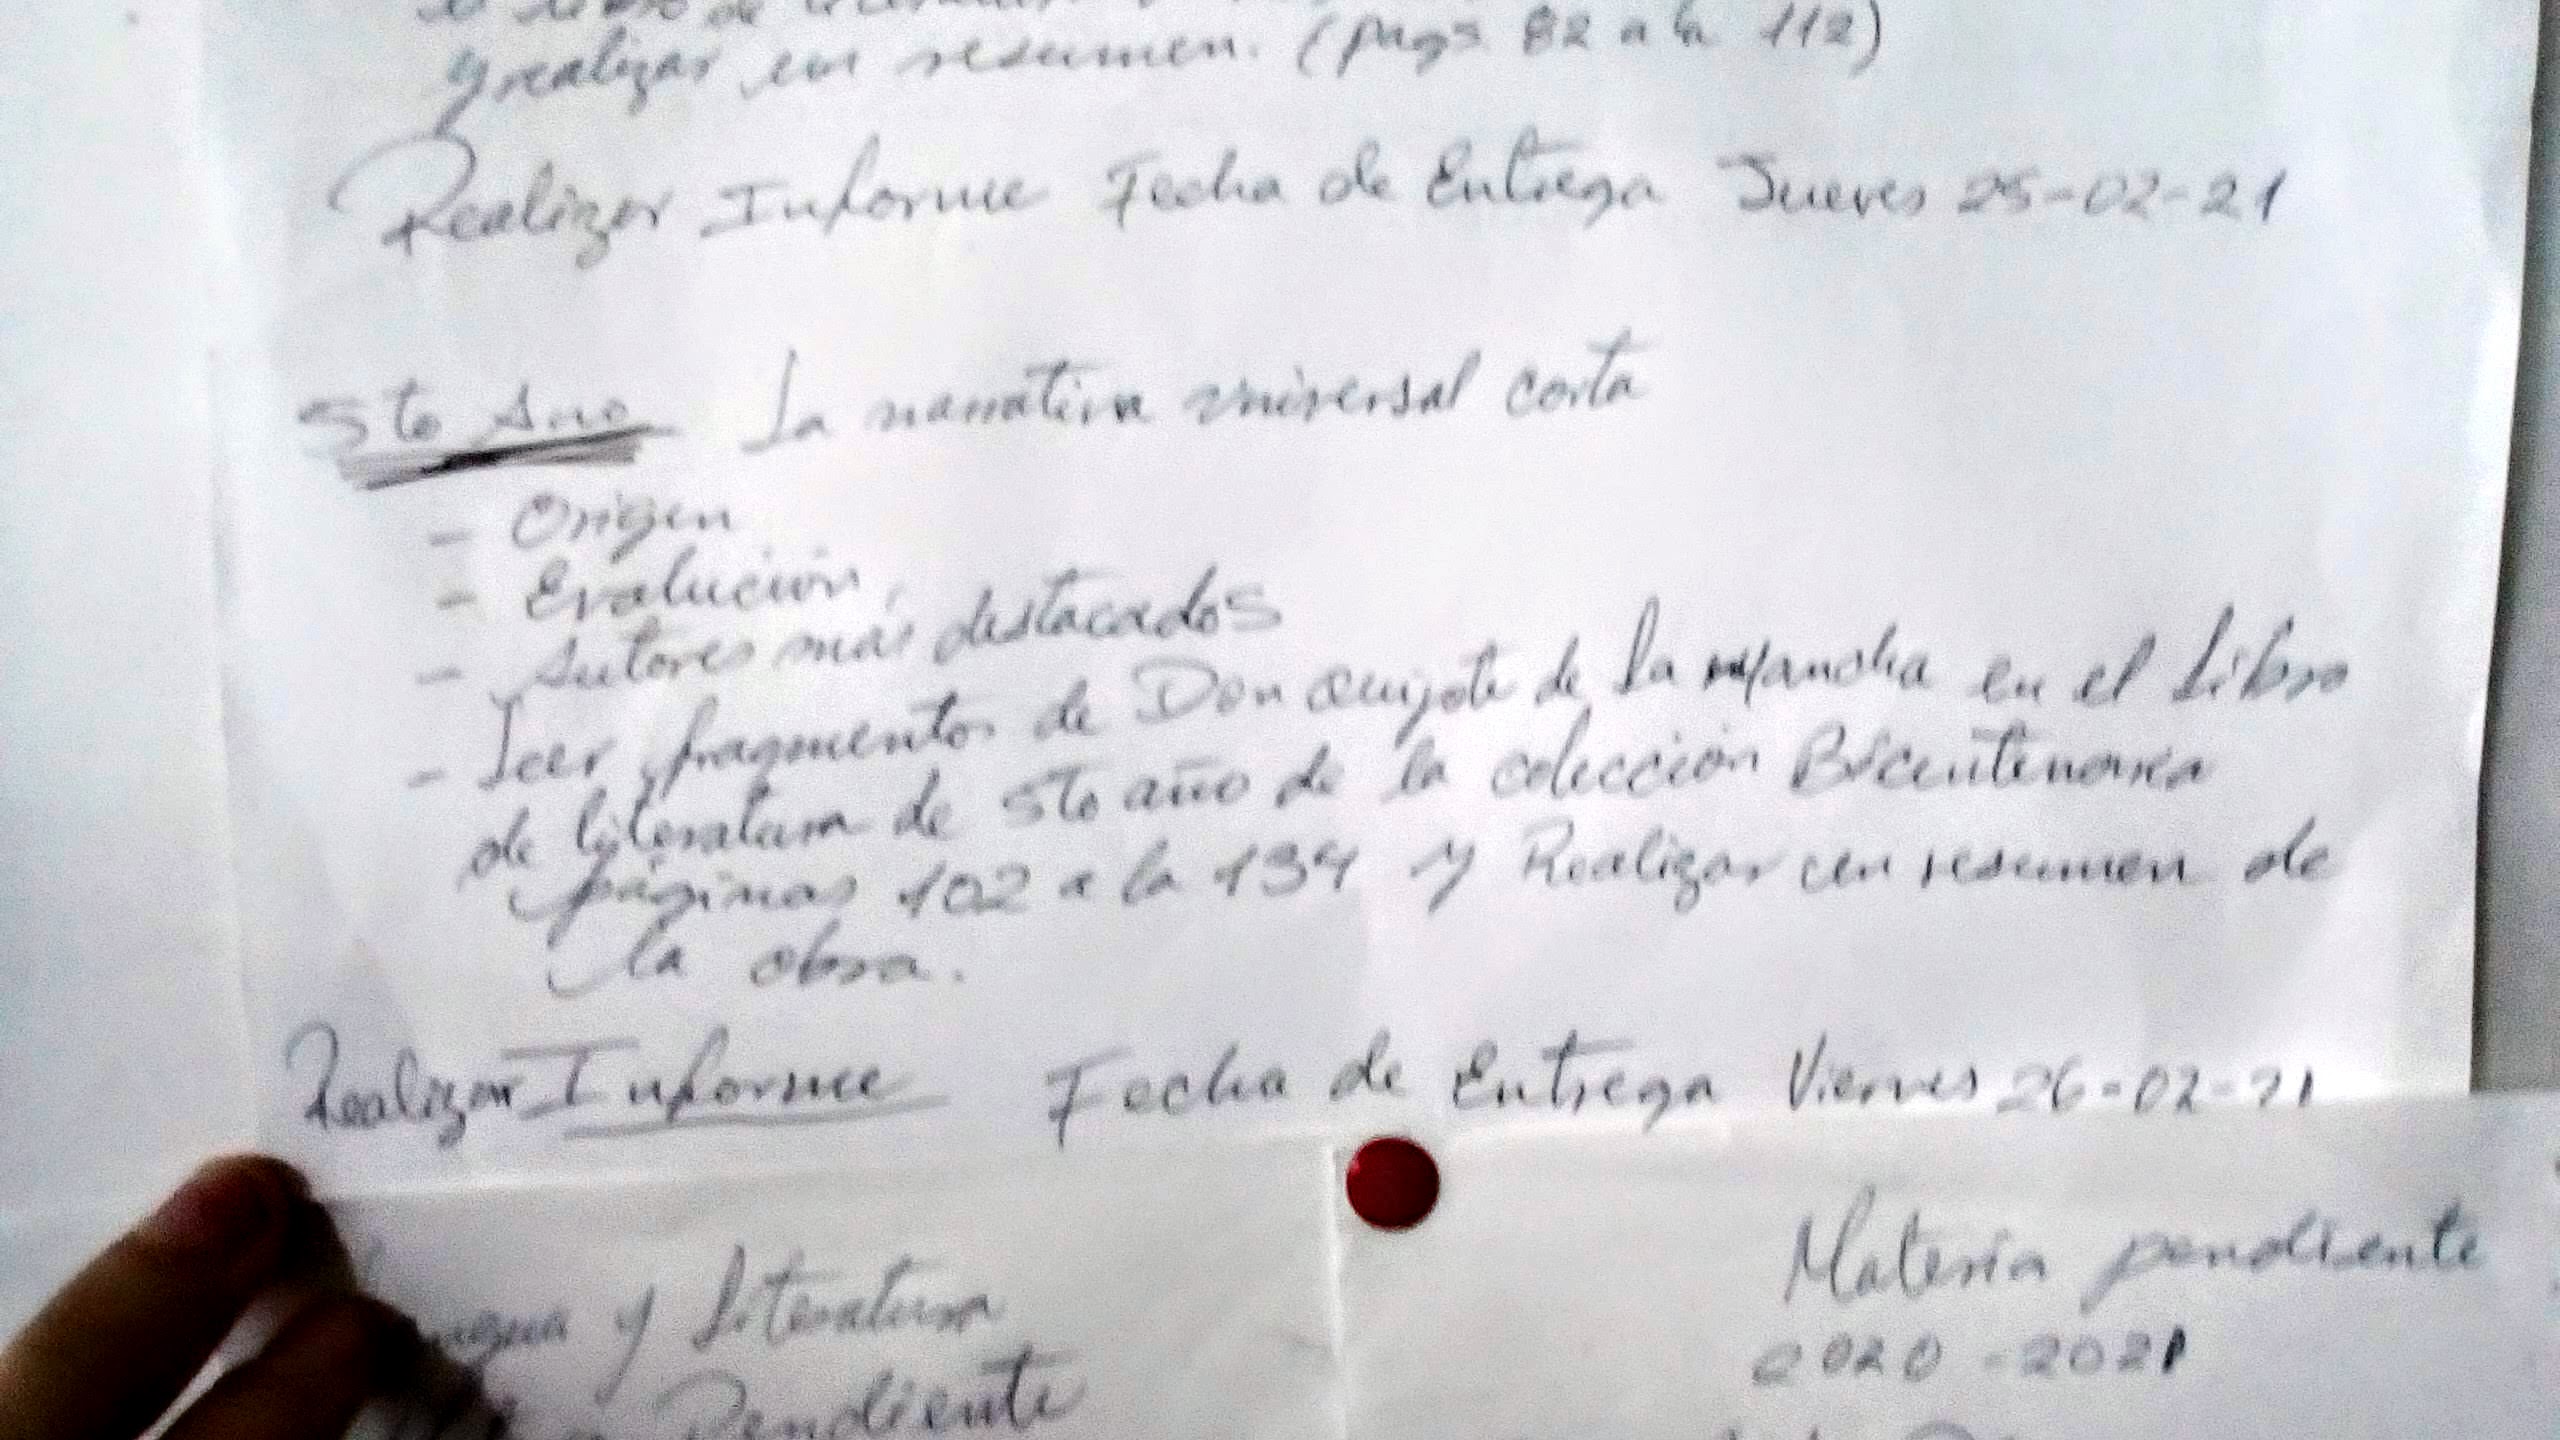 y realizar un resumen. (pags 82 a la 112)
Realizar Informe Fecha de Entrega Jueves 25-02-21
5to Año La narrativa universal corta
- Origen
- Evolución,
- Autores más destacados
- Leer fragmentos de Don Quijote de La Mancha en el Libro
de literatura de 5to año de la colección Bicentenaria
páginas 102 a la 134 y Realizar un resumen de
la obra.
Realizar Informe Fecha de Entrega Viernes 26-02-21
y Literatura
Pendiente
Materia pendiente
2020-2021